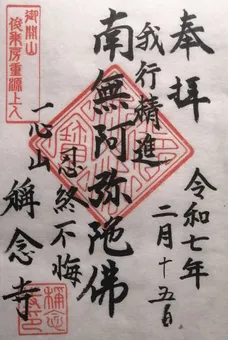 奉拝
令和七年
二月十五日
我行精進
南無阿弥陀佛
忍終不悔
一心山
稱念寺
御開山
俊乗房重源上人
稱念